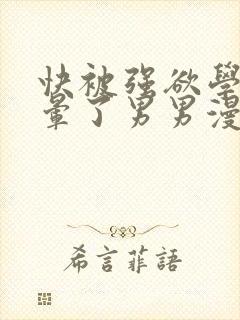 快被强欲學
暈了男男漫
希言菲語